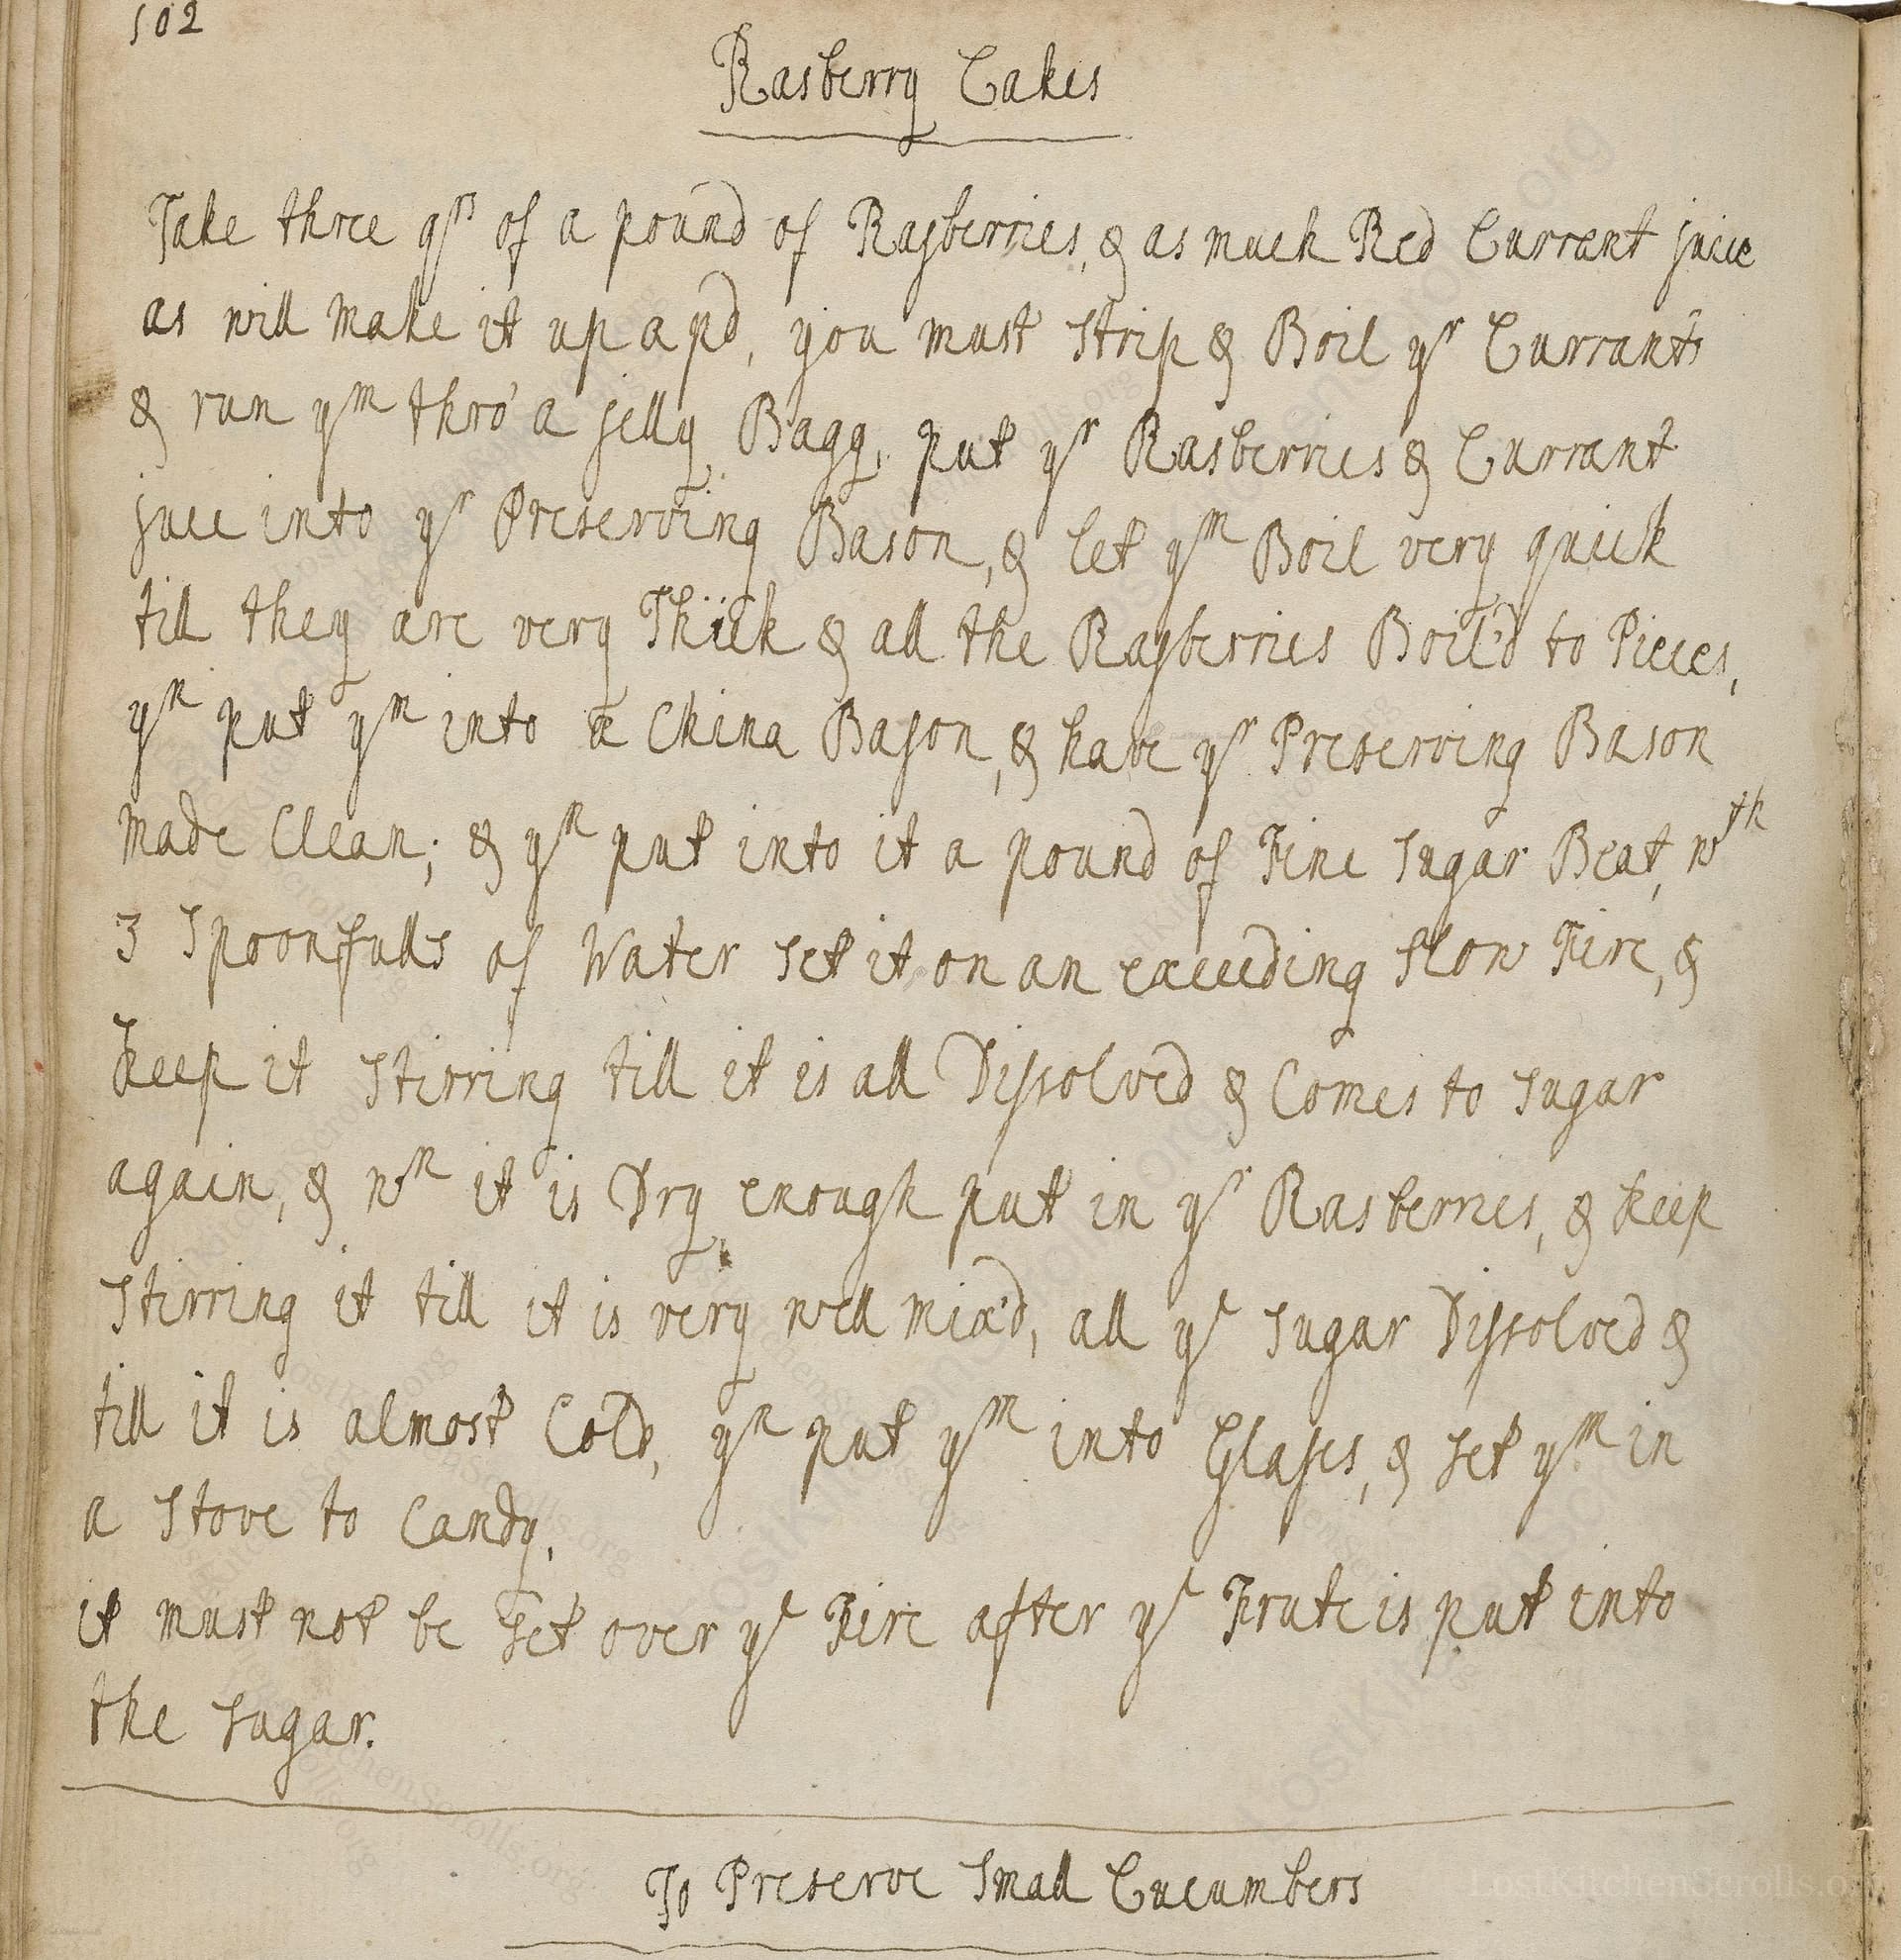 102
Rasberry Cakes
Take three qrs of a pound of Rasberries, & as much Red Currant juice
as will make it up a pd, you must strip & Boil yr Currants
& run ym thro' a jelly Bagg, put yr Rasberries & Currant
juce into yr Preserving Bason, & let ym Boil very quick
till they are very Thick & all the Rasberries Boil'd to Pieces,
yn put ym into a China Bason, & have yr Preserving Bason
made Clean; & yn put into it a pound of Fine Sugar Beat, wth
3 Spoonfulls of Water set it on an exceeding slow Fire, &
keep it stirring till it is all Dissolved & Comes to Sugar
again, & wn it is Dry enough put in yr Rasberries, & keep
stirring it till it is very well mix'd, all ye Sugar Dissolved &
till it is almost Cold, yn put ym into Glases, & set ym in
a Stove to Candy,
it must not be set over ye Fire after ye Frute is put into
the Sugar.
To Preserve Small Cucumbers
LostKitchenScrolls.org